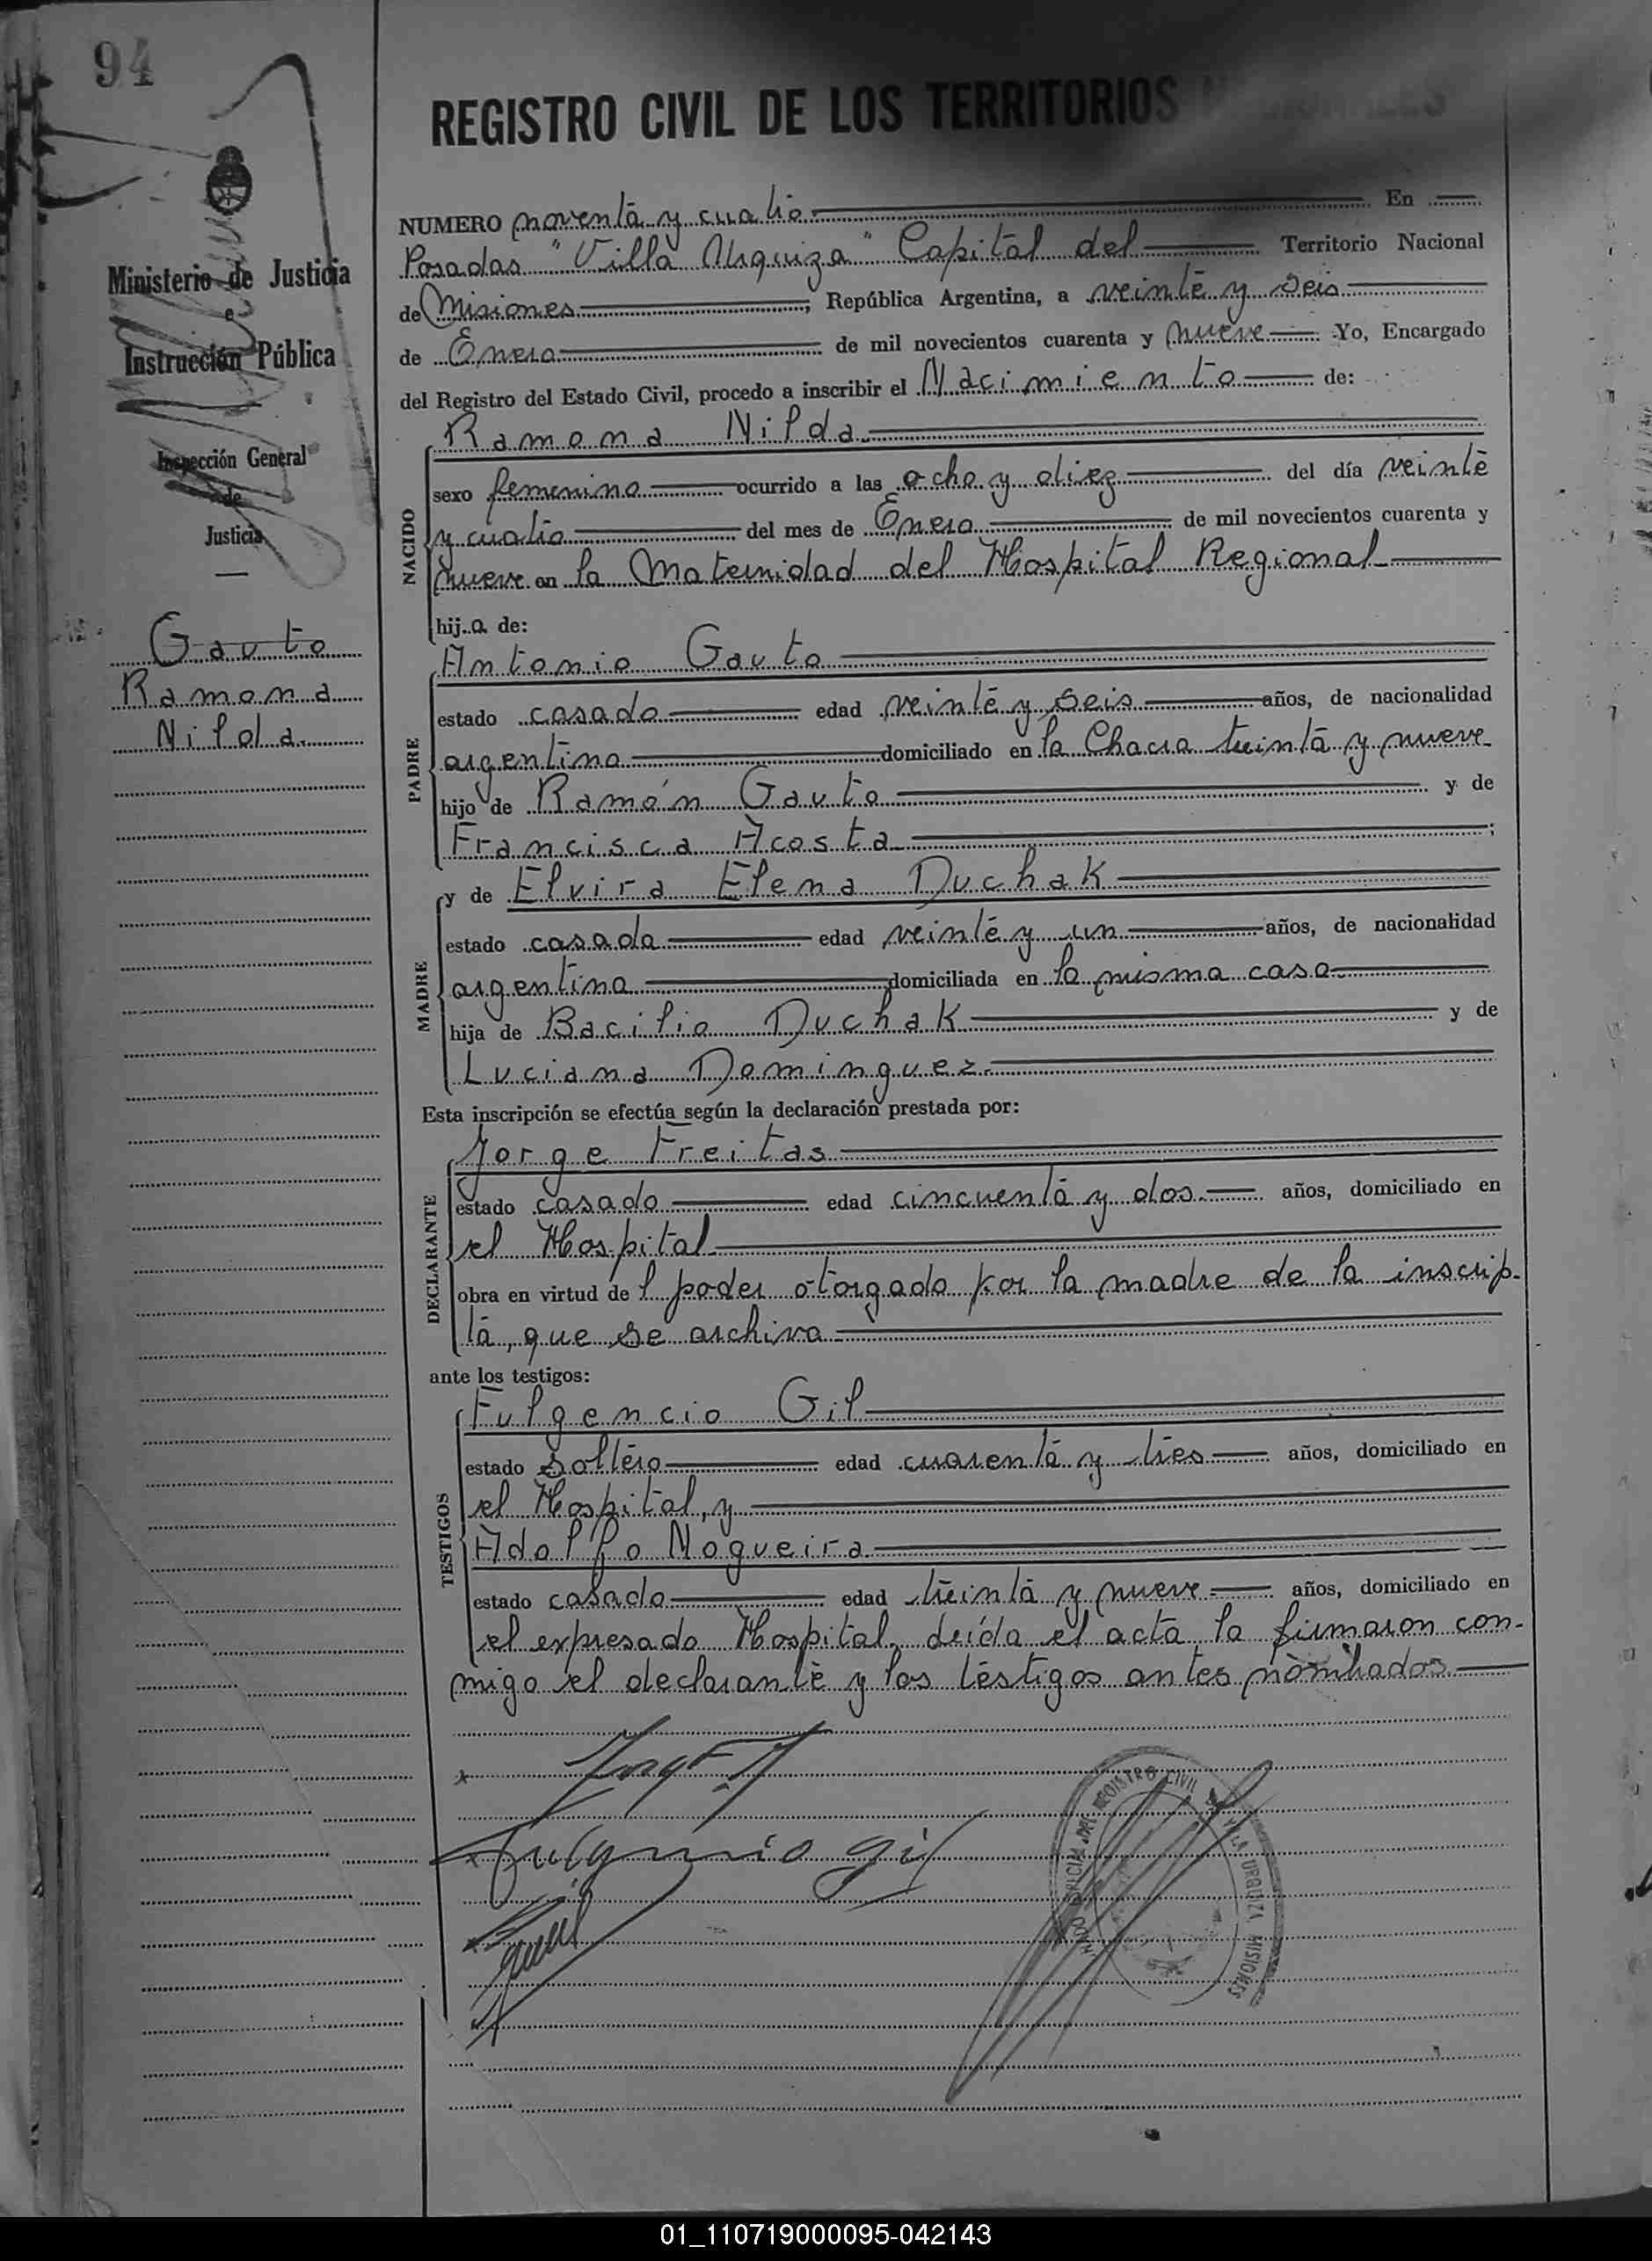 94
REGISTRO CIVIL DE LOS TERRITORIOS
Ministerio de Justicia
e
Instrucción Pública
Inspección General
de
Justicia
Gauto
Ramona
Nilda.
NUMERO noventa y cuatro En
Posadas "Villa Urquiza" Capital del Territorio Nacional
de Misiones, República Argentina, a veinte y seis
de Enero de mil novecientos cuarenta y nueve Yo, Encargado
del Registro del Estado Civil, procedo a inscribir el Nacimiento de:
NACIDO
Ramona Nilda.
sexo femenino ocurrido a las ocho y diez del día veinte
y cuatro del mes de Enero de mil novecientos cuarenta y
nueve en la Maternidad del Hospital Regional
hij.a de:
PADRE
Antonio Gauto
estado casado edad veinte y seis años, de nacionalidad
argentino domiciliado en la Chacra treinta y nueve
hijo de Ramón Gauto y de
Francisca Acosta ;
MADRE
y de Elvira Elena Duchak
estado casada edad veinte y un años, de nacionalidad
argentina domiciliada en la misma casa
hija de Bacilio Duchak y de
Luciana Dominguez.
Esta inscripción se efectúa según la declaración prestada por:
DECLARANTE
Jorge Freitas
estado casado edad cincuenta y dos. años, domiciliado en
el Hospital
obra en virtud de l poder otorgado por la madre de la inscrip-
ta, que se archiva
ante los testigos:
TESTIGOS
Fulgencio Gil
estado soltero edad cuarenta y tres años, domiciliado en
el Hospital, y
Adolfo Nogueira.
estado casado edad treinta y nueve. años, domiciliado en
el expresado Hospital, leída el acta, la firmaron con-
migo el declarante y los testigos antes nombrados
Fulgencio gil
REGISTRO CIVIL
URQUIZA MISIONES
01_110719000095-042143